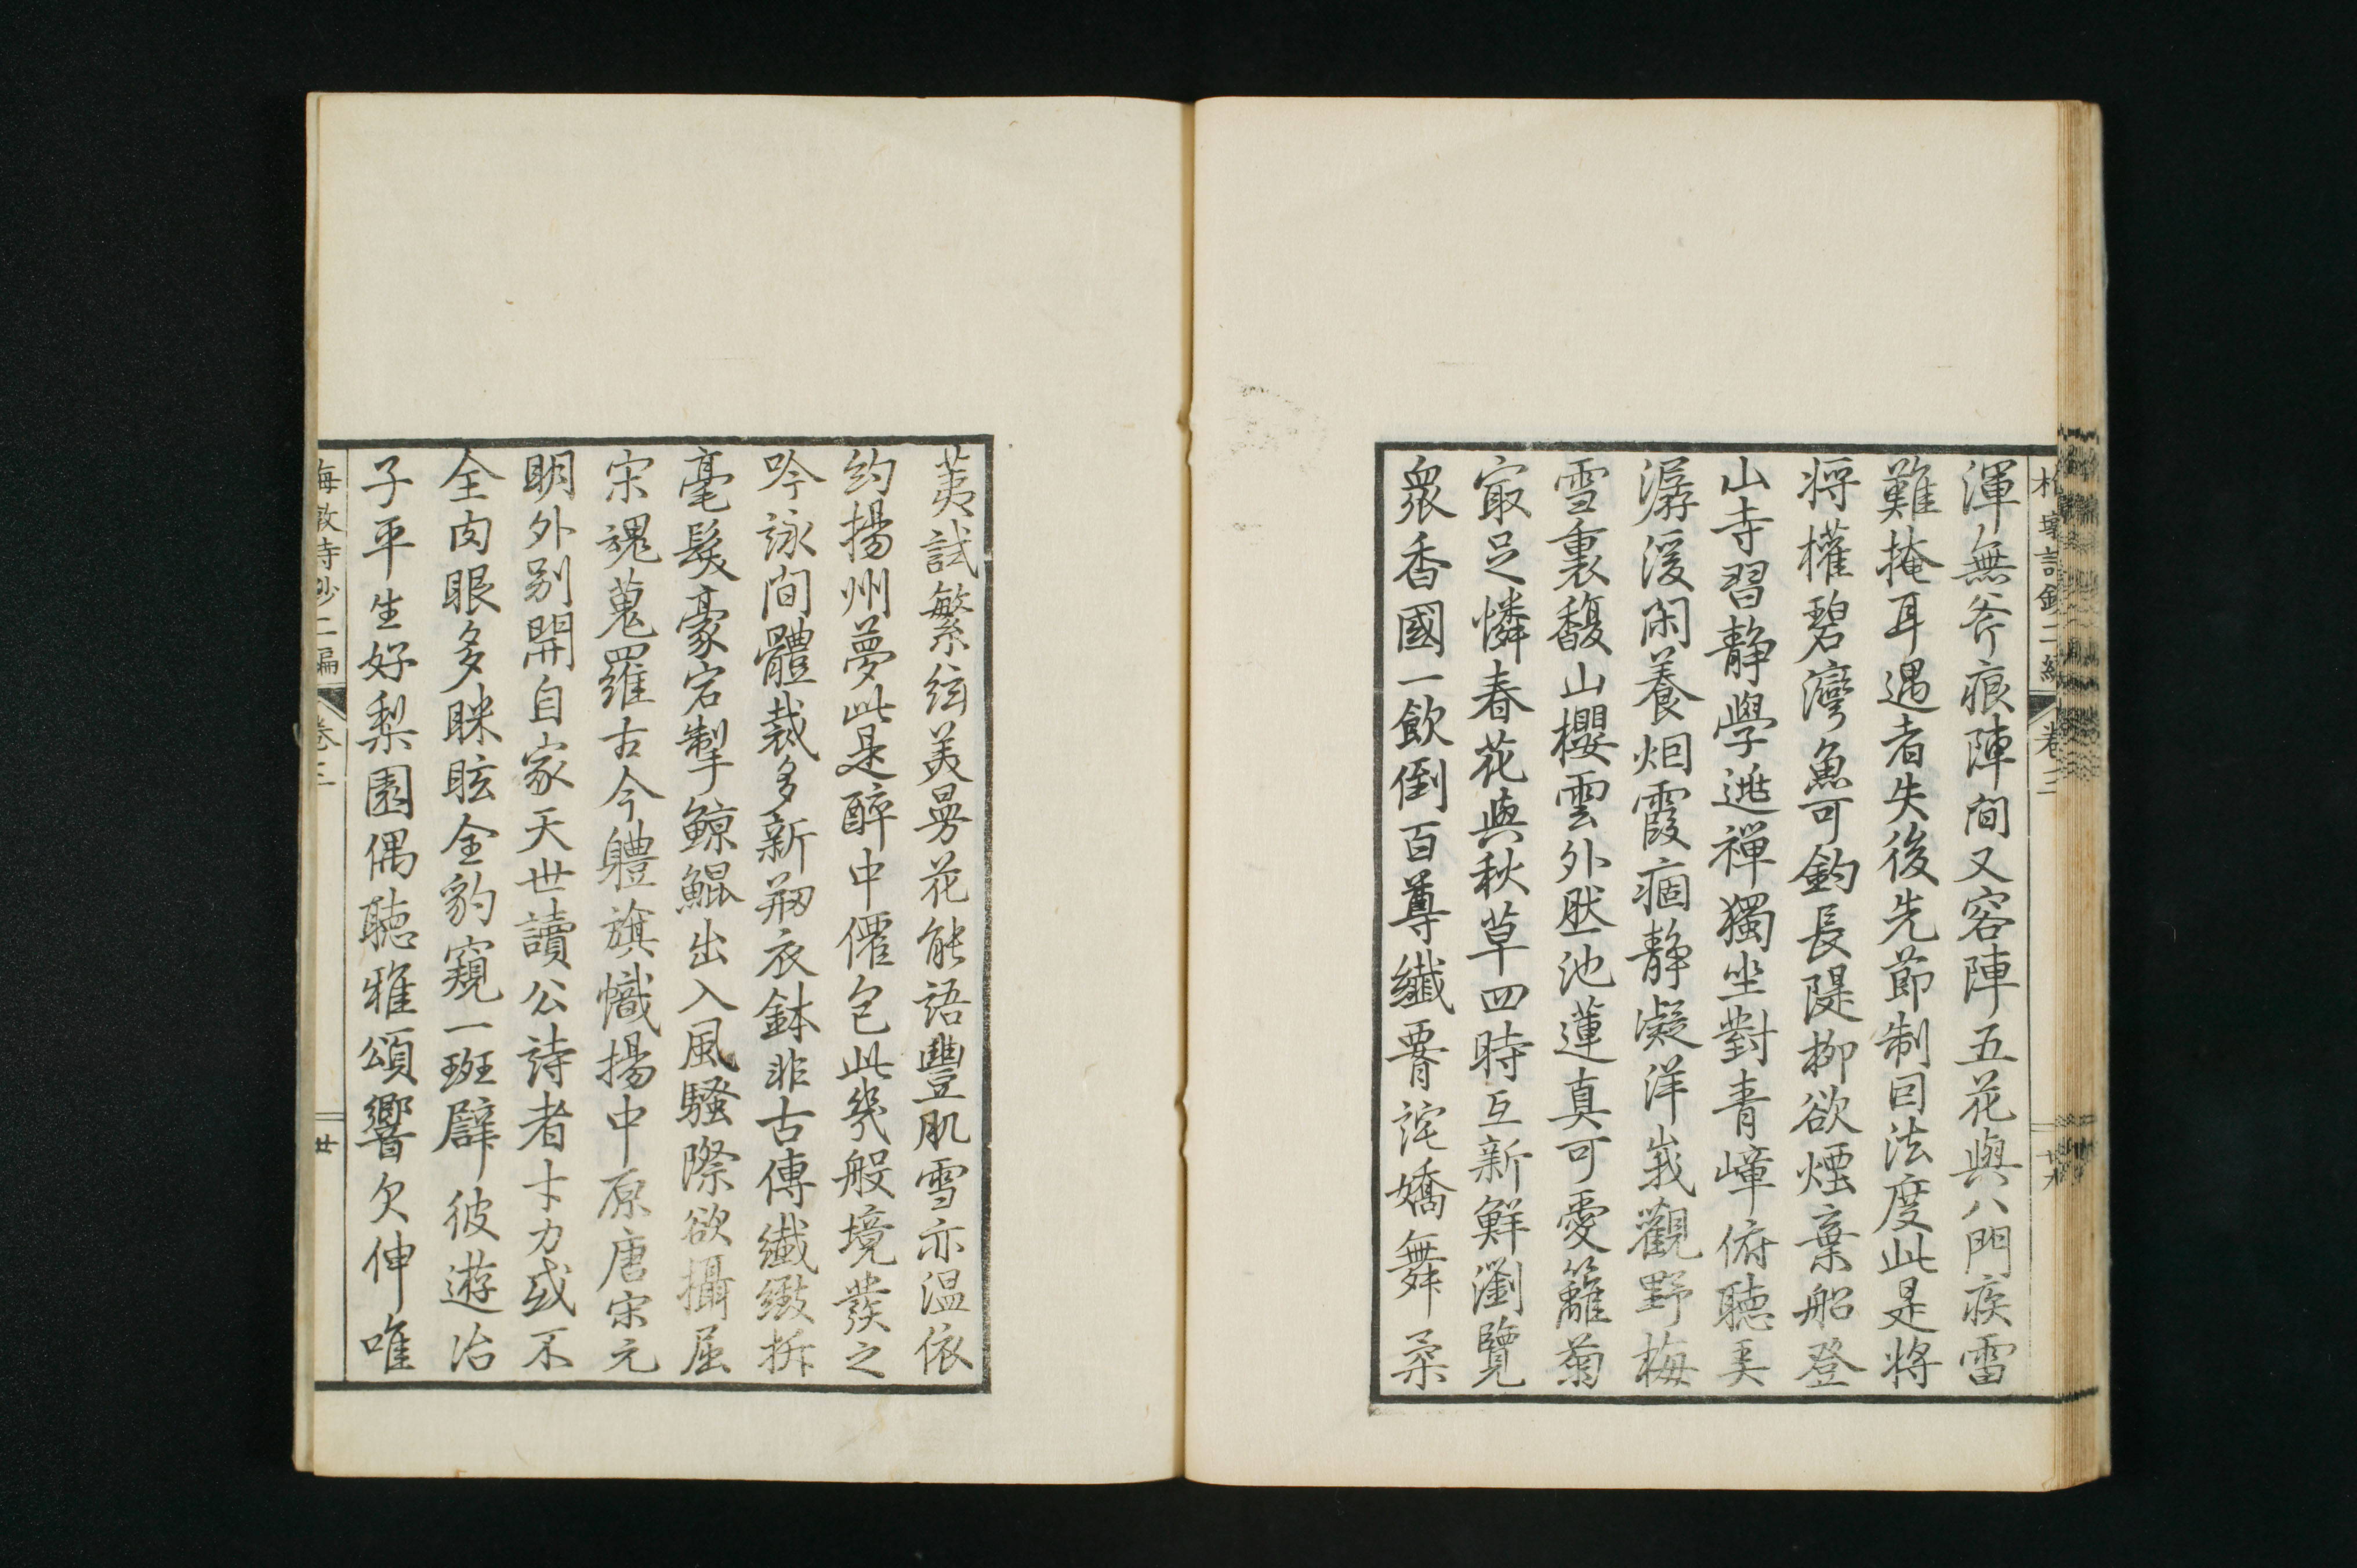 渾無斧痕陣間又容陣五花與八門疾雷
難掩耳遇者失後先節制目法度此是將
將權碧灣魚可釣長隄柳欲煙棄船登
山寺習靜學逃禪獨坐對青嶂俯聽
潺湲閑養烟霞痼靜凝洋峩觀野梅
雪裏馥山櫻雲外然池蓮真可愛籬菊
㝡足憐春花與秋草四時互新鮮瀏覽
衆香國一飲倒百尊纖腰詫嬌舞柔
荑試繁絃美曼花能語豐肌雪亦温依
約揚州夢此是醉中僊包此幾般境發之
吟詠間體裁多新剏衣鉢非古傳纖緻拆
毫髮豪宕掣鯨鯤出入風騷際欲攝屈
宋魂蒐羅古今軆旗幟揚中原唐宋元
明外别開自家天世讀公詩者才力或不
全肉眼多眯眩全豹窺一斑辟彼遊冶
子平生好梨園偶聽雅頌響欠伸唯
梅墩詩鈔二編
卷三
廿